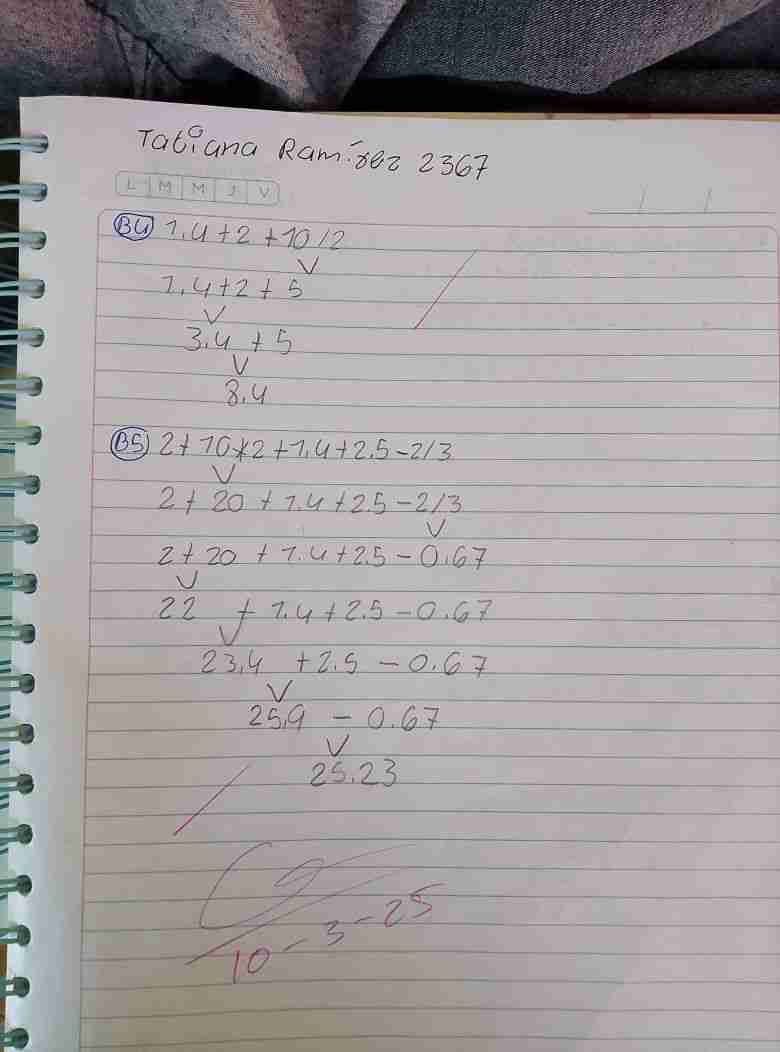 Tatiana Ramírez 2367
L M M J V
B4 1.4+2+10/2
1.4+2+5
3.4+5
8.4
B5 2+10*2+1.4+2.5-2/3
2+20+1.4+2.5-2/3
2+20+1.4+2.5-0.67
22+1.4+2.5-0.67
23.4+2.5-0.67
25.9-0.67
25.23
10-3-25